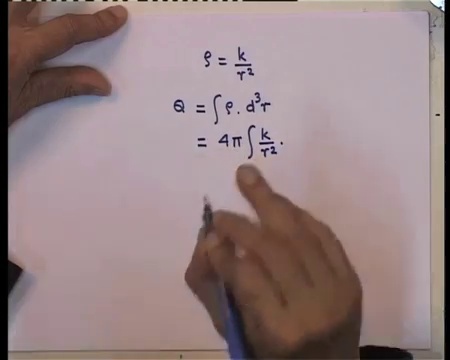 ρ = k/r²
Q = ∫ ρ. d³r
= 4π ∫ k/r².